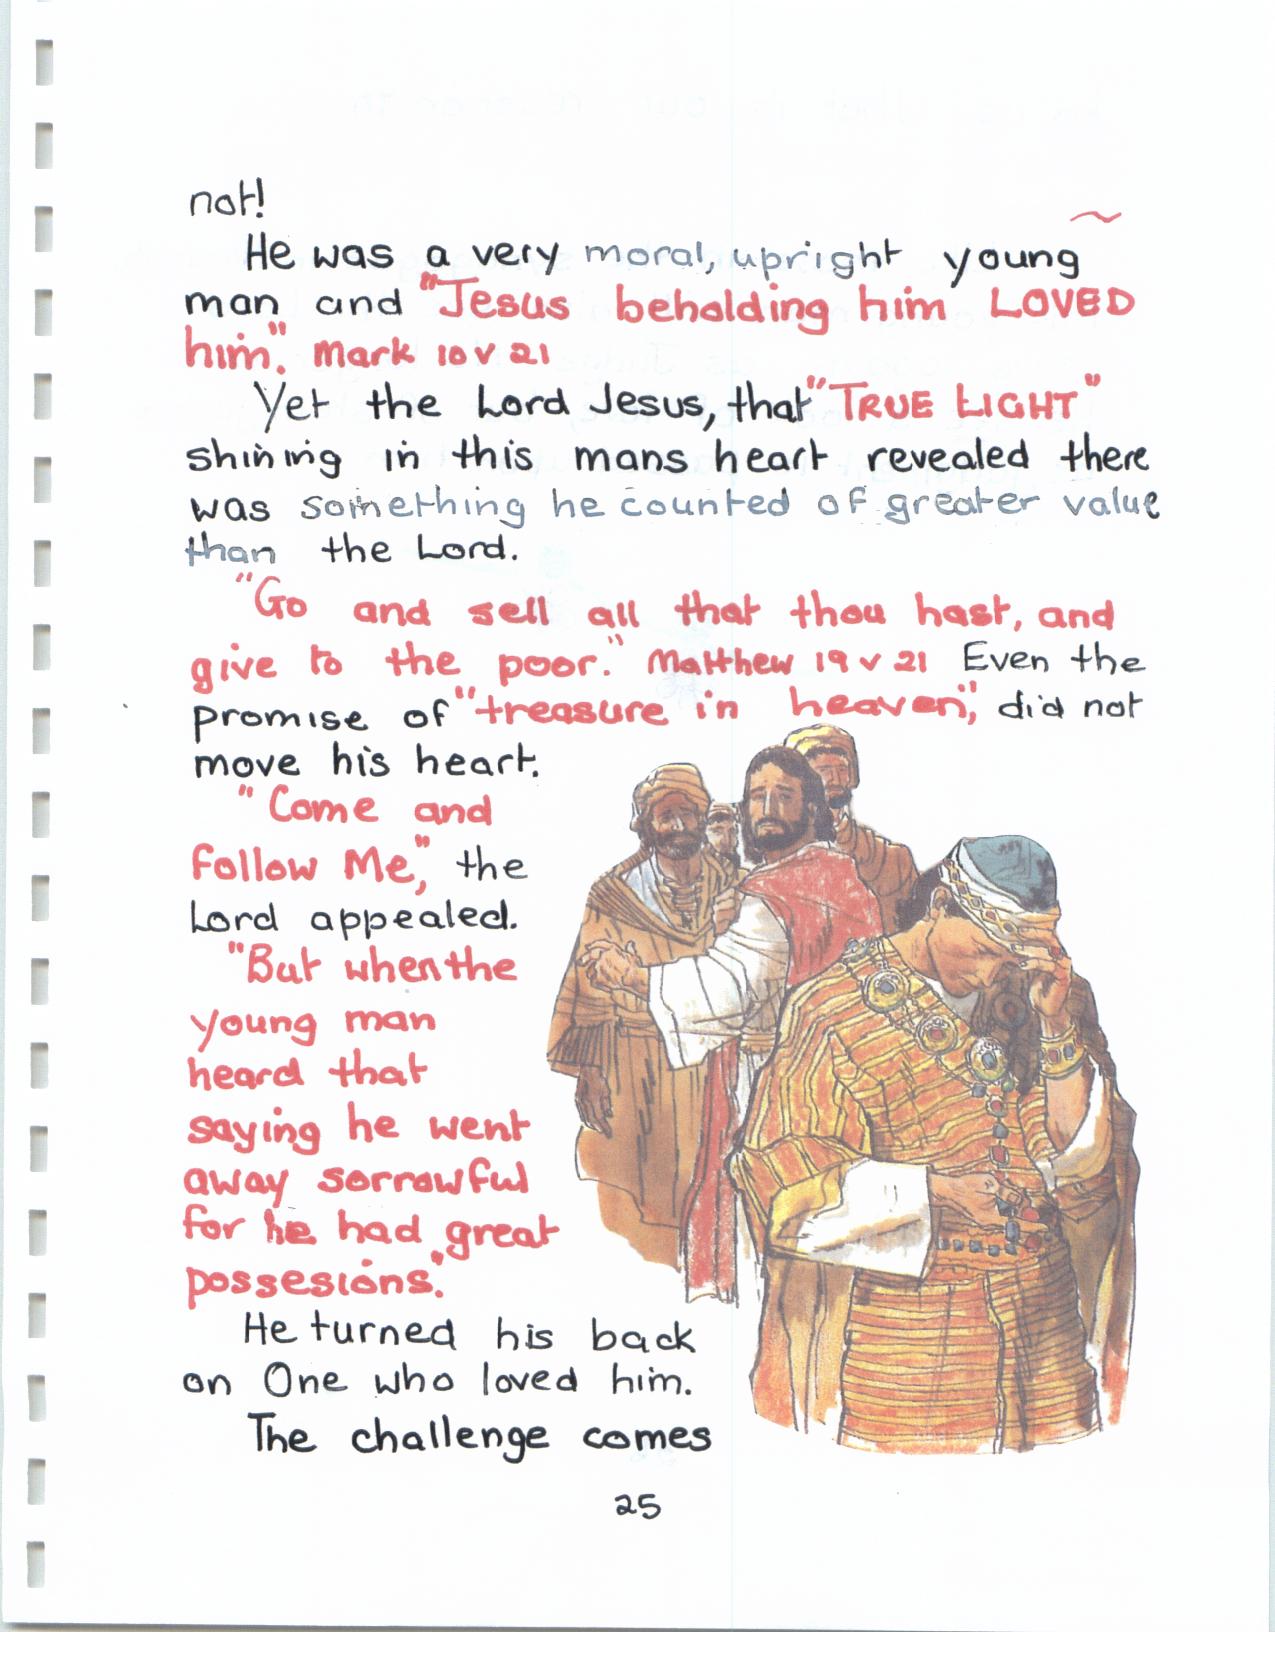 not!
He was a very moral, upright young
man and "Jesus beholding him LOVED
him". Mark 10 v 21
Yet the Lord Jesus, that "TRUE LIGHT"
shining in this mans heart revealed there
was something he counted of greater value
than the Lord.
"Go and sell all that thou hast, and
give to the poor." Matthew 19 v 21 Even the
promise of "treasure in heaven", did not
move his heart.
"Come and
follow Me," the
Lord appealed.
"But when the
young man
heard that
saying he went
away sorrowful
for he had great
possesions."
He turned his back
on One who loved him.
The challenge comes
25